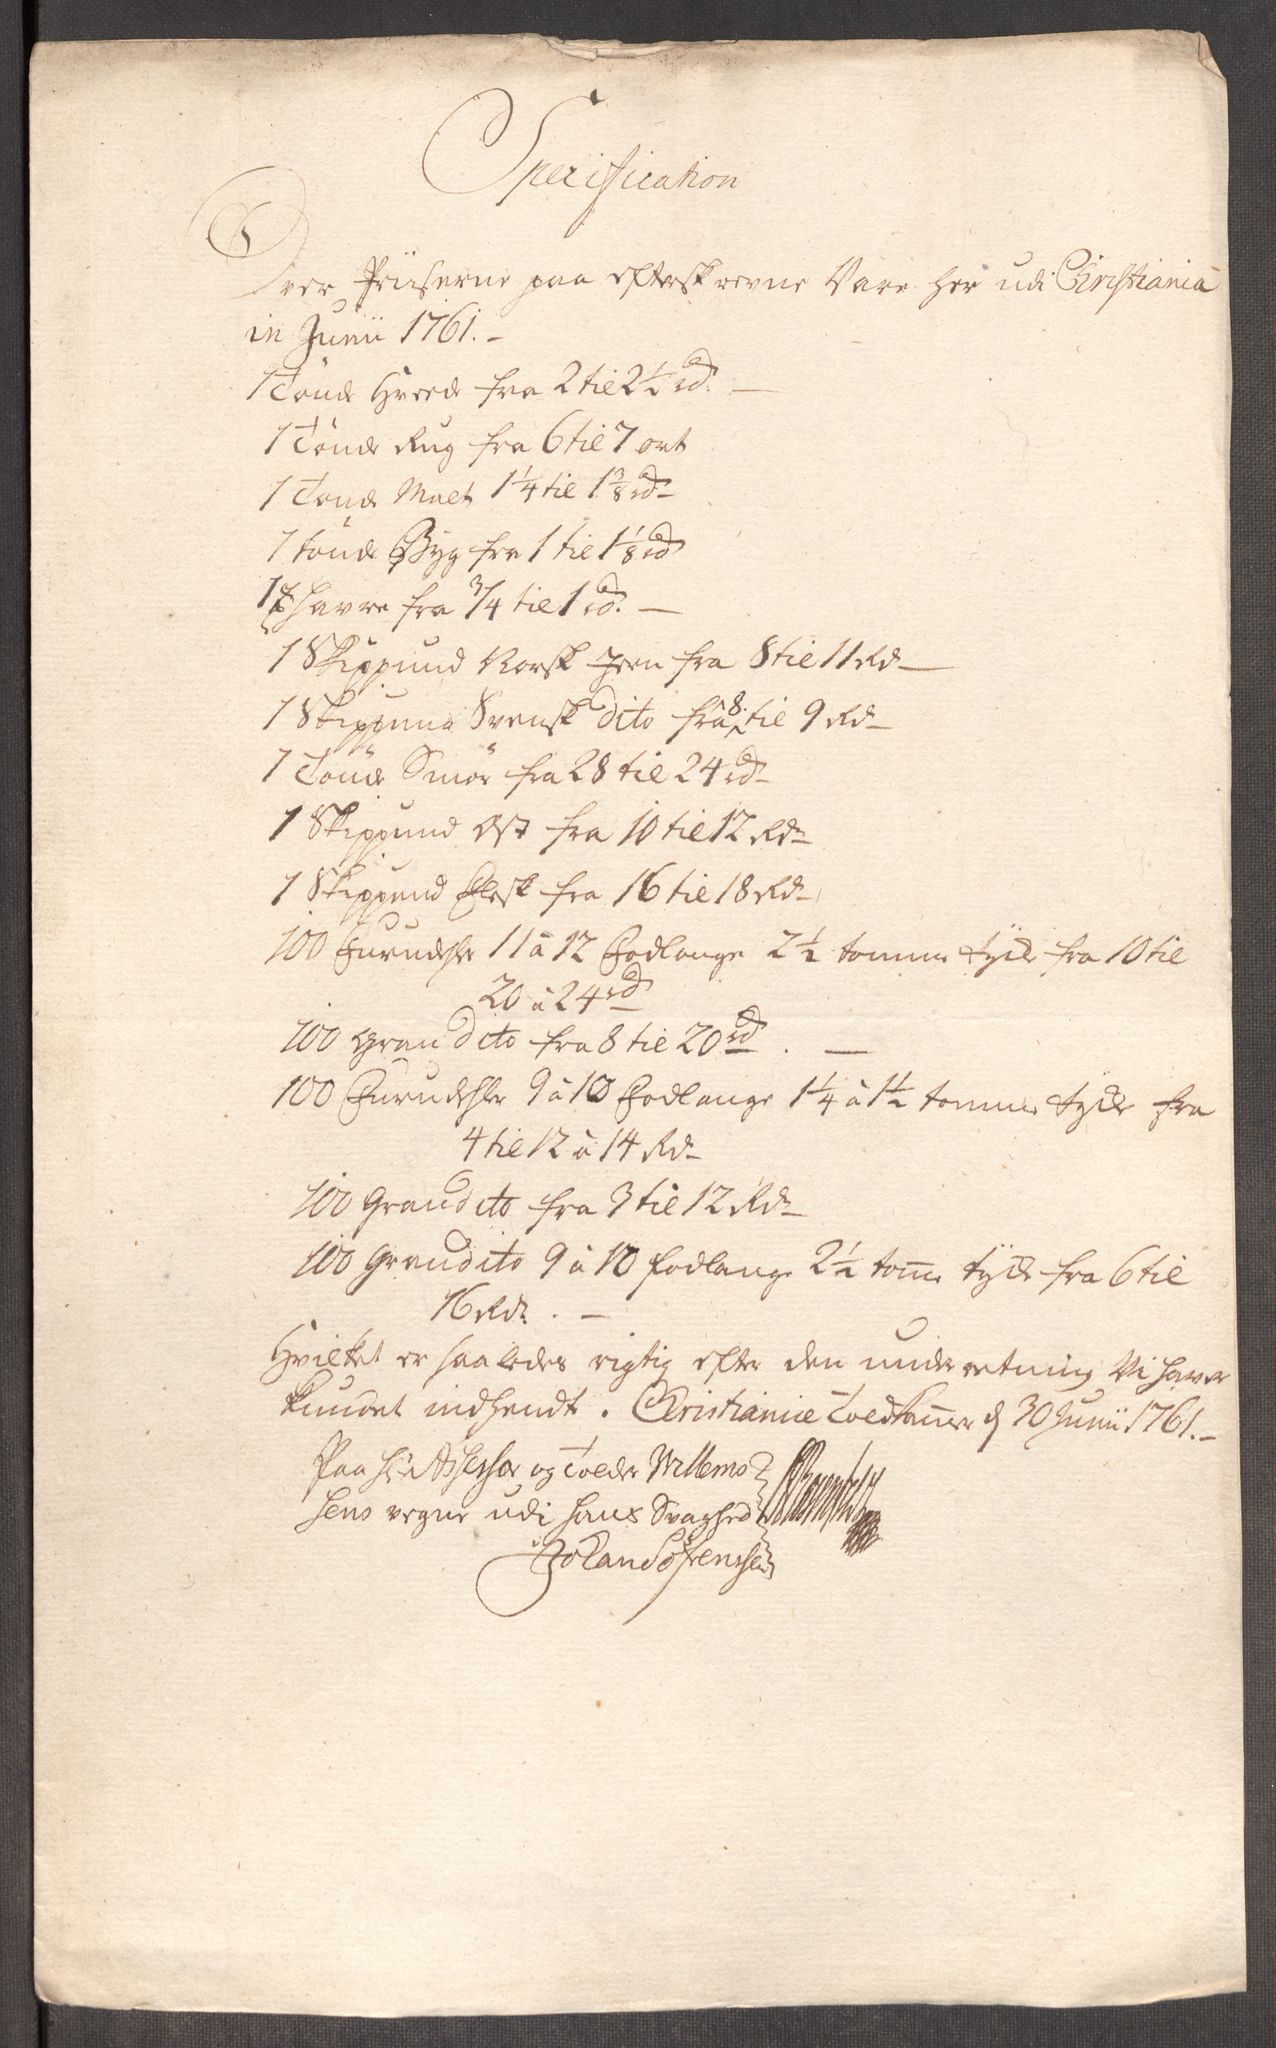 Specification
Over Priiserne paa efterskrevne Vare her udi Christiania
in Junii 1761. -
1 Tönde Hvede fra 2 til 2 1/2 rd. -
1 Tönde Rug fra 6 til 7 ort
1 Tönde Malt 1 1/4 til 1 3/8 rd
1 tönde Byg fra 1 til 1 1/8 rd
1 t havre fra 3/4 til 1 rd. -
1 Skippund Norsk Jern fra 8 til 11 Rd -
1 Skippund Svensk dito fra 8. til 9 Rd -
1 Tönde Smör fra 28 til 24 rd -
1 Skippund Ost fra 10 til 12 Rd
1 Skippund Flesk fra 16 til 18 Rd -
100 Furudehler 11 à 12 Fodlange 2 1/2 tomme tycke fra 10 til
20 à 24 rd
100 Gran dito fra 8 til 20 rd . -
100 Furudehler 9 à 10 Fodlange 1 1/4 à 1 1/2 tomme tycke fra
4 til 12 à 14 Rd -
100 Gran dito fra 3 til 12 Rd
100 Gran dito 9 à 10 fodlange 2 1/2 tome tycke fra 6 til
16 Rd. . -
Hvilket er saaledes rigtig efter den underretning Vi haver
kundet indhendt. Christianiæ Toldkamer d 30 Junii 1761. -
Paa Hr Assessor og Tolder Willems
sens vegne udi hans Svaghed
Sörenssen